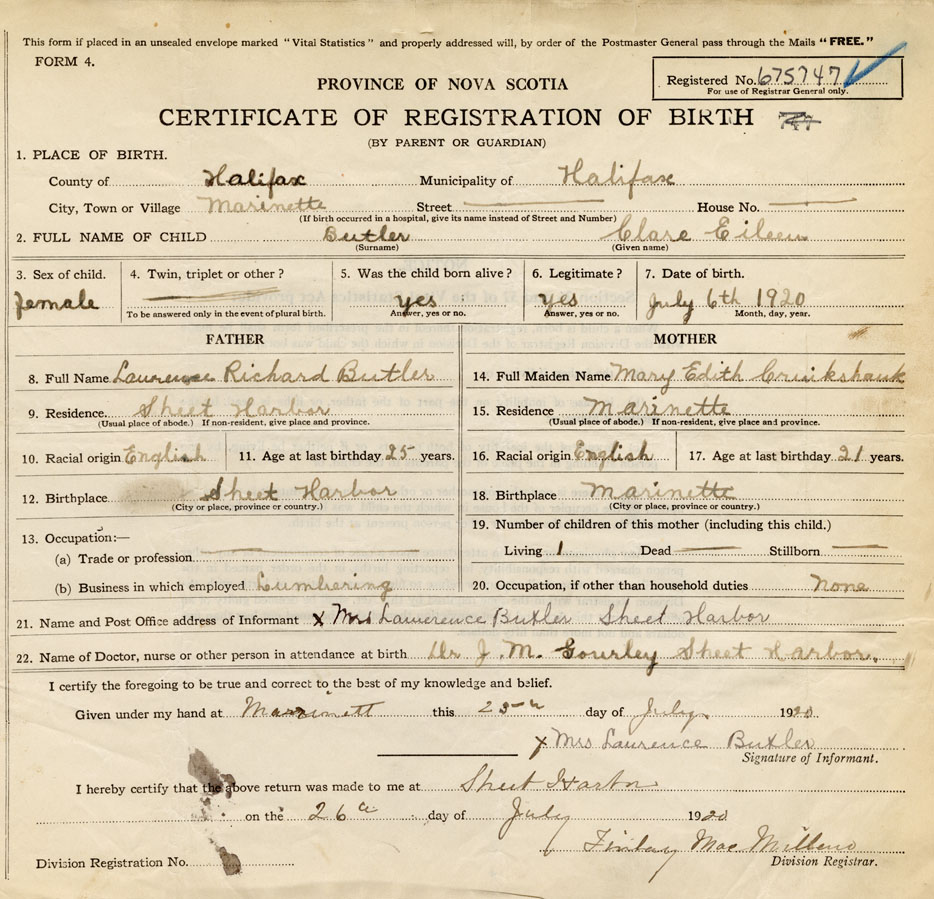 This form if placed in an unsealed envelope marked "Vital Statistics" and properly addressed will, by order of the Postmaster General pass through the Mails "FREE."
FORM 4.
Registered No. 675747
For use of Registrar General only.
PROVINCE OF NOVA SCOTIA
CERTIFICATE OF REGISTRATION OF BIRTH
(BY PARENT OR GUARDIAN)
1. PLACE OF BIRTH.
County of Halifax Municipality of Halifax
City, Town or Village Marinette Street House No.
(If birth occurred in a hospital, give its name instead of Street and Number)
2. FULL NAME OF CHILD Butler Clare Eileen
(Surname) (Given name)
3. Sex of child. 4. Twin, triplet or other? 5. Was the child born alive? 6. Legitimate? 7. Date of birth.
female yes yes July 6th 1920
To be answered only in the event of plural birth. Answer, yes or no. Answer, yes or no. Month, day, year.
FATHER MOTHER
8. Full Name Laurence Richard Butler 14. Full Maiden Name Mary Edith Cruikshank
9. Residence. Sheet Harbor 15. Residence Marinette
(Usual place of abode.) If non-resident, give place and province. (Usual place of abode.) If non-resident, give place and province.
10. Racial origin English 11. Age at last birthday 25 years. 16. Racial origin English 17. Age at last birthday 21 years.
12. Birthplace Sheet Harbor 18. Birthplace Marinette
(City or place, province or country.) (City or place, province or country.)
13. Occupation:— 19. Number of children of this mother (including this child.)
(a) Trade or profession Living 1 Dead Stillborn
(b) Business in which employed Lumbering 20. Occupation, if other than household duties None
21. Name and Post Office address of Informant x Mrs Lawerence Butler Sheet Harbor
22. Name of Doctor, nurse or other person in attendance at birth Dr. J. M. Gourley Sheet Harbor.
I certify the foregoing to be true and correct to the best of my knowledge and belief.
Given under my hand at Marinett this 25th day of July 1920
x Mrs Laurence Butler
Signature of Informant.
I hereby certify that the above return was made to me at Sheet Harbor
on the 26th day of July 1920
Finlay MacMillan
Division Registration No. Division Registrar.